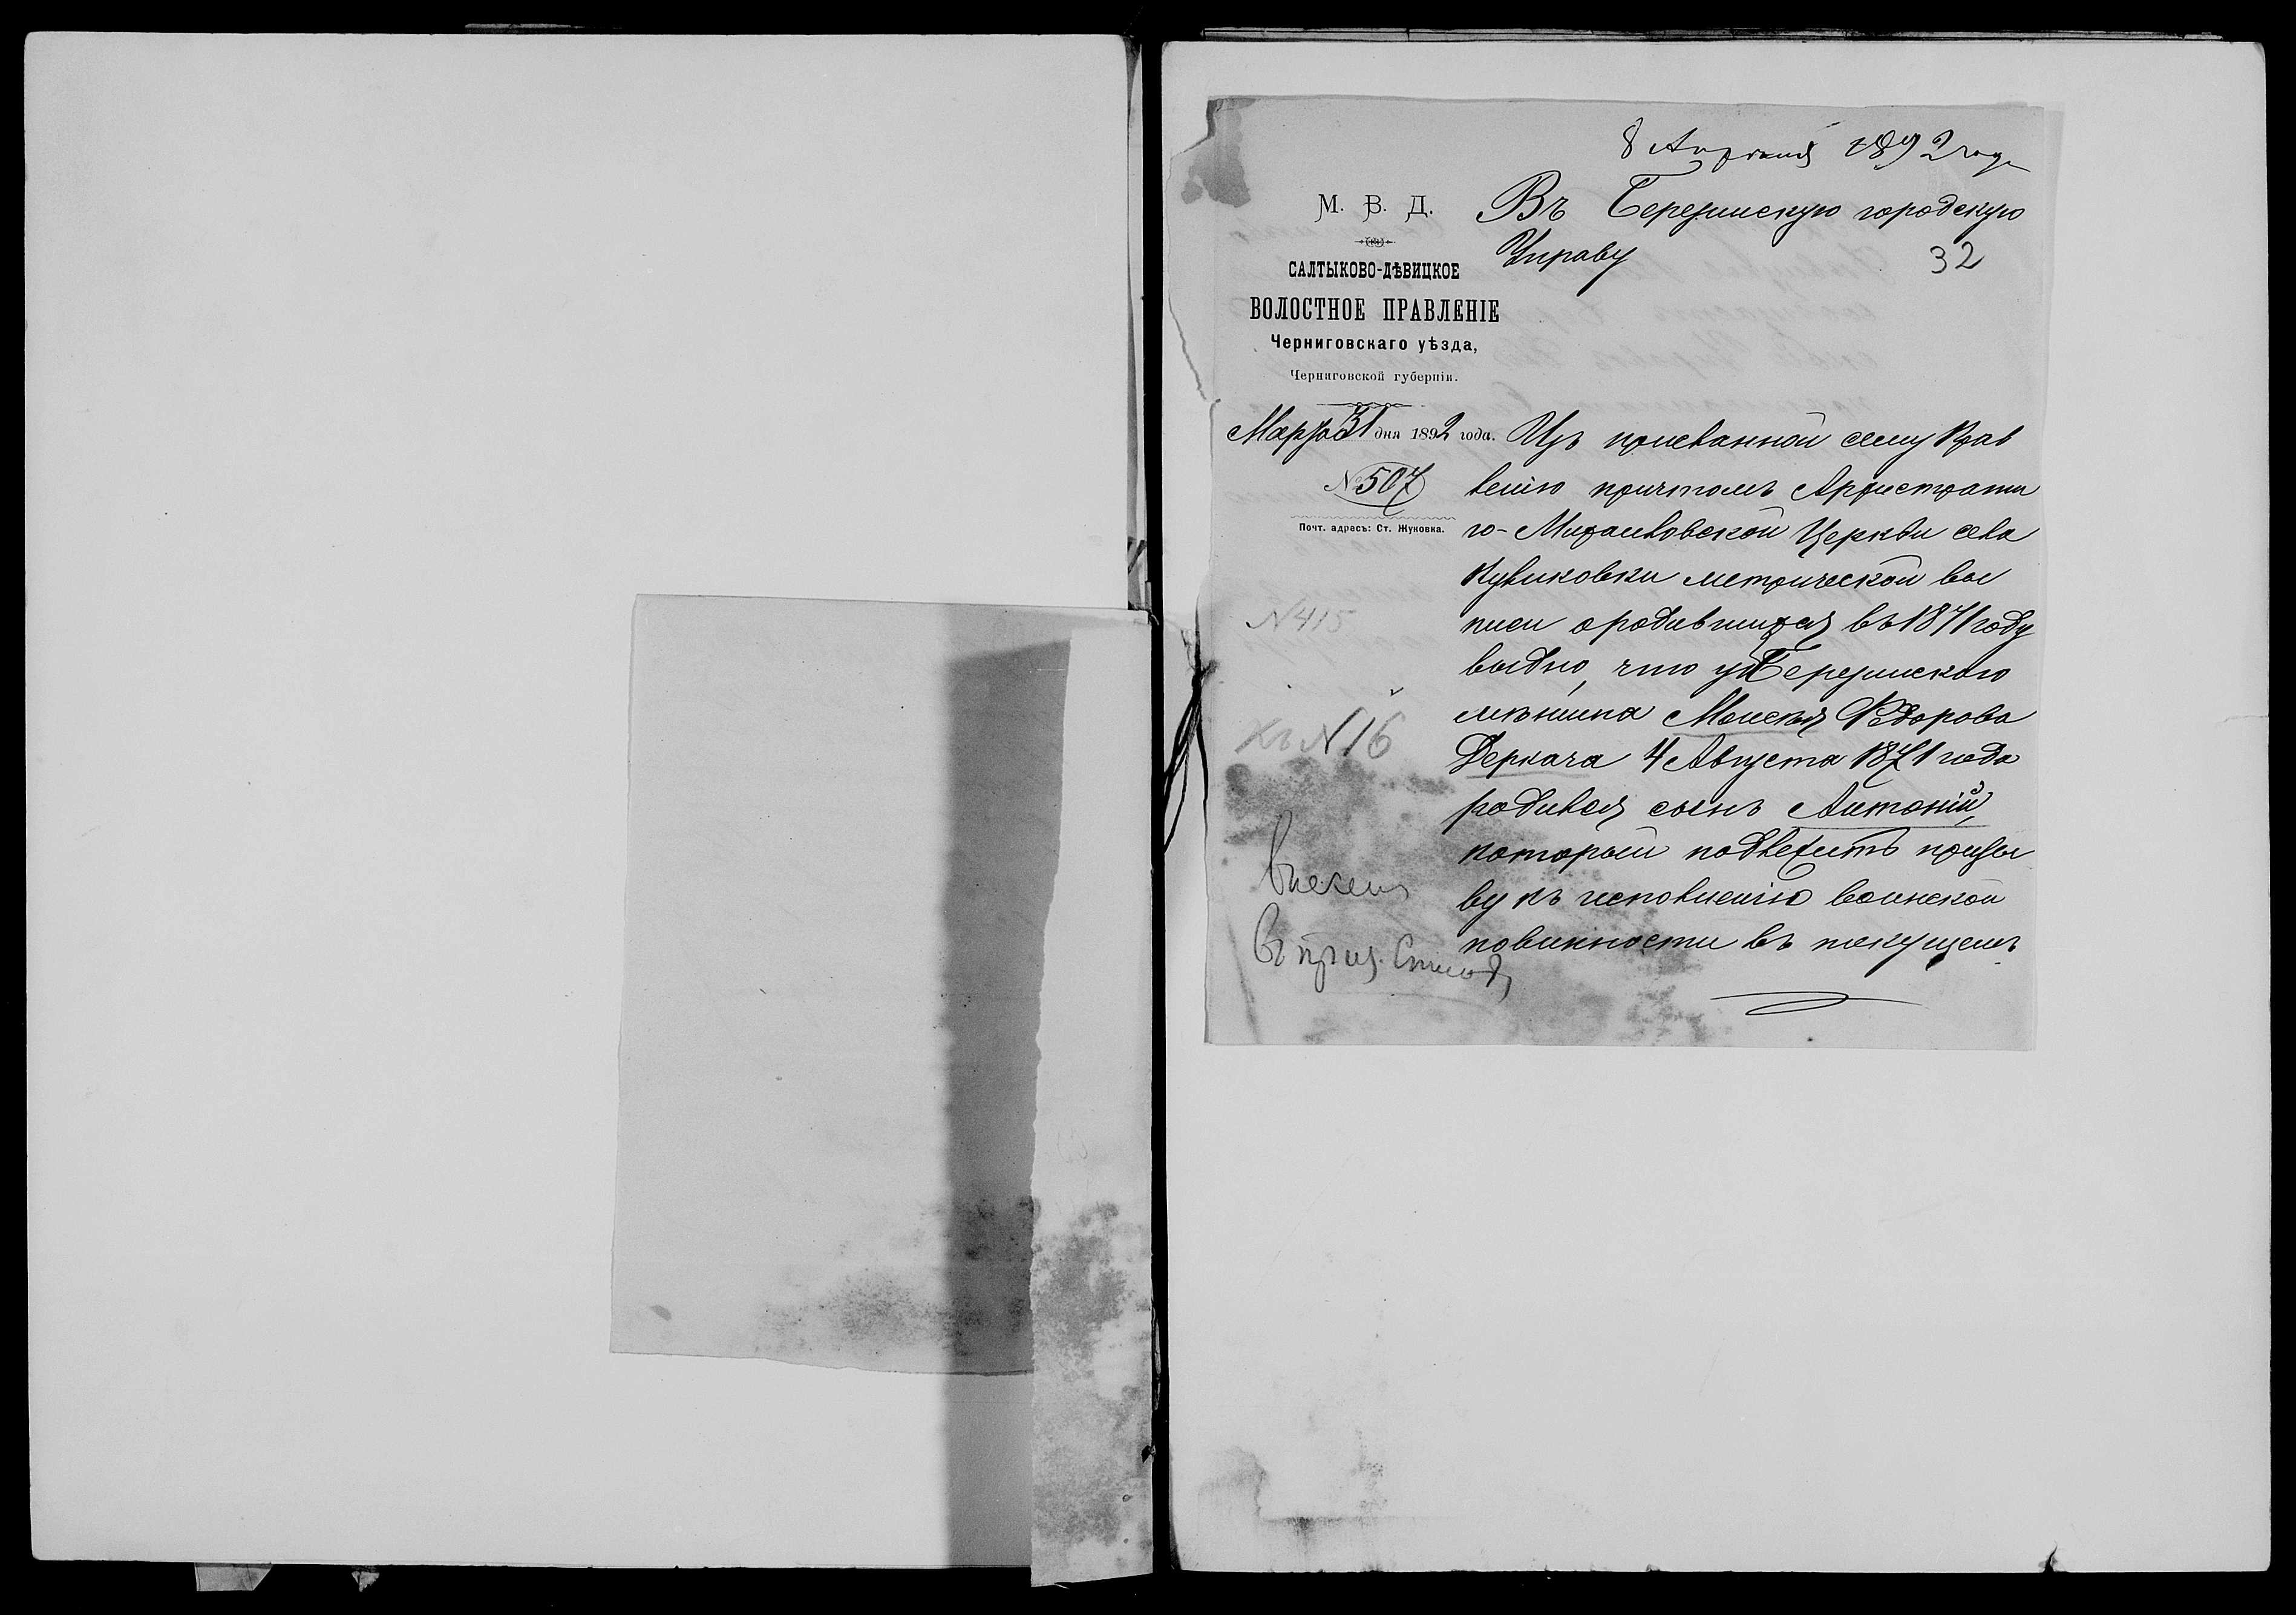 8 Апрѣля 1892 года
М. В. Д.
САЛТЫКОВО-ДѢВИЦКОЕ
ВОЛОСТНОЕ ПРАВЛЕНІЕ
Черниговскаго уѣзда,
Черниговской губерніи.
Марта 31 дня 1892 года.
№ 507
Почт. адресъ: Ст. Жуковка.
N 415
къ N 16
Внесенъ
въ приз. списокъ
Въ Березинскую городскую
Управу
32
Изъ присланной сему Прав
ленію причтомъ Архистрати
го-Михаиловской Церкви села
Куликовки метрической вы
писи о родившихся въ 1871 году
видно, что у Березинскаго
мѣщанина Моисея Федорова
Деркача 4 Августа 1871 года
родился сынъ Антоній,
который подлежитъ призы
ву къ исполненію воинской
повинности въ текущемъ